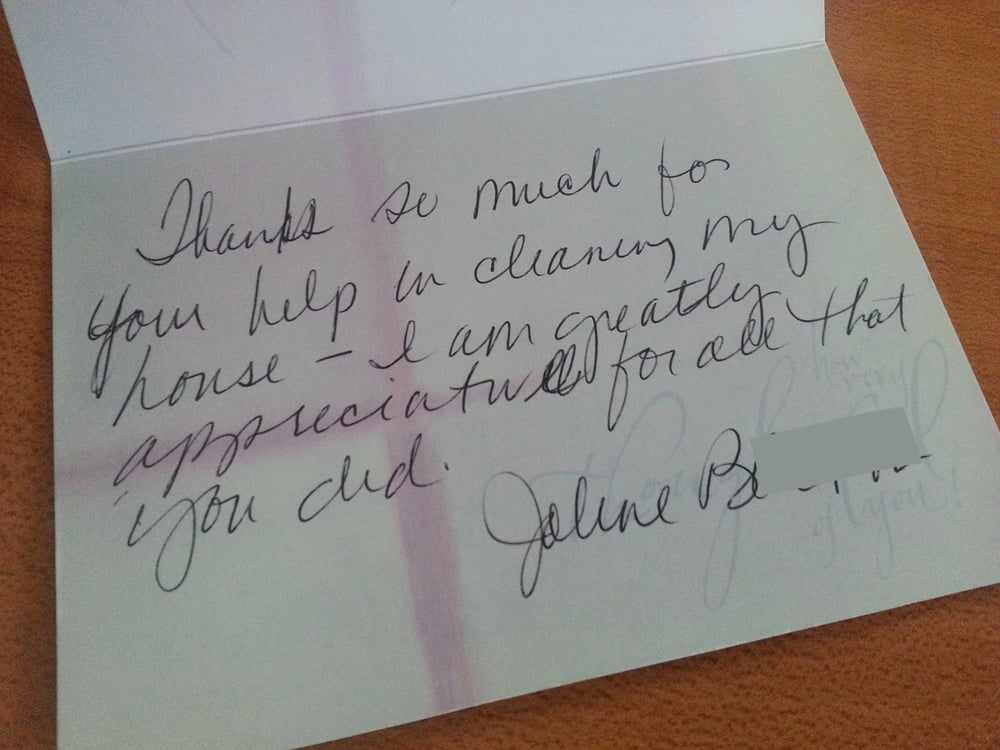 Thanks so much for
your help in cleaning my
house – I am greatly
appreciative for all that
you did.
Jolene B
how very
thoughtful
of you!